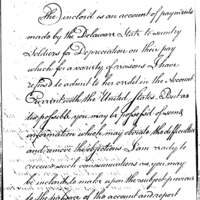 The Inclosed is an account of payments
made by the Delaware State to sundry
Soldiers for Depreciation on their pay
which for a variety of reasons I have
refused to admit to her credit in the Account
Current with the United States. But as
its possible you may be possessed of some
information which may obviate the difficulties
and remove the objections I am ready to
receive such communications as you may
be inclined to make upon the subject previous
to the closure of the account and report